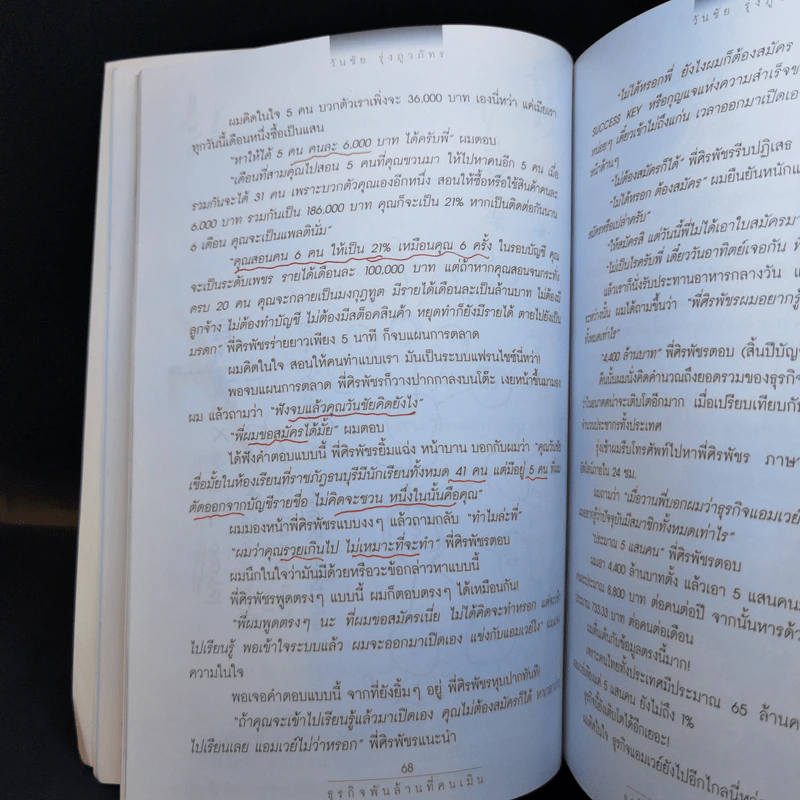 วันชัย รุ่งฤวภัทร
ผมคิดในใจ 5 คน บวกตัวเราเพิ่งจะ 36,000 บาท เองนี่หว่า แค่เมียเรา
ทุกวันนี้เดือนหนึ่งซื้อเป็นแสน
"หาให้ได้ 5 คน คนละ 6,000 บาท ได้ครับพี่" ผมตอบ
"เดือนที่สามคุณไปสอน 5 คนที่คุณชวนมา ให้ไปหาคนอีก 5 คน เมื่อ
รวมกันจะได้ 31 คน เพราะบวกตัวคุณเองอีกหนึ่ง สอนให้ซื้อหรือใช้สินค้าคนละ
6,000 บาท รวมกันเป็น 186,000 บาท คุณก็จะเป็น 21% หากเป็นติดต่อกันนาน
6 เดือน คุณจะเป็นแพลตินั่ม"
"คุณสอนคน 6 คน ให้เป็น 21% เหมือนคุณ 6 ครั้ง ในรอบบัญชี คุณ
จะเป็นระดับเพชร รายได้เดือนละ 100,000 บาท แต่ถ้าหากคุณสอนจนกระทั่ง
ครบ 20 คน คุณจะกลายเป็นมงกุฎทูต มีรายได้เดือนละเป็นล้านบาท ไม่ต้องมี
ลูกจ้าง ไม่ต้องทำบัญชี ไม่ต้องมีสต็อคสินค้า หยุดทำก็ยังมีรายได้ ตายไปยังเป็น
มรดก" พี่ศิรพัชรร่ายยาวเพียง 5 นาที ก็จบแผนการตลาด
ผมคิดในใจ สอนให้คนทำแบบเรา มันเป็นระบบแฟรนไชซ์นี่หว่า!
พอจบแผนการตลาด พี่ศิรพัชรก็วางปากกาลงบนโต๊ะ เงยหน้าขึ้นมามอง
ผม แล้วถามว่า "ฟังจบแล้วคุณวันชัยคิดยังไง"
"พี่ผมขอสมัครได้มั้ย" ผมตอบ
ได้ฟังคำตอบแบบนี้ พี่ศิรพัชรยิ้มแฉ่ง หน้าบาน บอกกับผมว่า "คุณวันชัย
เชื่อมั้ยในห้องเรียนที่ราชภัฏธนบุรีมีนักเรียนทั้งหมด 41 คน แต่มีอยู่ 5 คน ที่ผม
ตัดออกจากบัญชีรายชื่อ ไม่คิดจะชวน หนึ่งในนั้นคือคุณ"
ผมมองหน้าพี่ศิรพัชรแบบงงๆ แล้วถามกลับ "ทำไมล่ะพี่"
"ผมว่าคุณรวยเกินไป ไม่เหมาะที่จะทำ" พี่ศิรพัชรตอบ
ผมนึกในใจว่ามันมีด้วยหรือวะข้อกล่าวหาแบบนี้
พี่ศิรพัชรพูดตรงๆ แบบนี้ ผมก็ตอบตรงๆ ได้เหมือนกัน!
"พี่ผมพูดตรงๆ นะ ที่ผมขอสมัครเนี่ย ไม่ได้คิดจะทำหรอก แต่จะเข้า
ไปเรียนรู้ พอเข้าใจระบบแล้ว ผมจะออกมาเปิดเอง แข่งกับแอมเวย์ไง"
ความในใจ
พอเจอคำตอบแบบนี้ จากที่ยังยิ้มๆ อยู่ พี่ศิรพัชรหุบปากทันที!
"ถ้าคุณจะเข้าไปเรียนรู้แล้วมาเปิดเอง คุณไม่ต้องสมัครก็ได้
ไปเรียนเลย แอมเวย์ไม่ว่าหรอก" พี่ศิรพัชรแนะนำ
68
ธุรกิจพันล้านที่คนเมิน
วันชัย รุ่งฤ
"ไม่ได้หรอกพี่ ยังไงผมก็ต้องสมัคร
SUCCESS KEY หรือกุญแจแห่งความสำเร็จข
หน่อยๆ เดี๋ยวเข้าไม่ถึงแก่น เวลาออกมาเปิดเอง
หน้าด้านๆ
"ไม่ต้องสมัครก็ได้" พี่ศิรพัชรรีบปฏิเสธ
"ไม่ได้หรอก ต้องสมัคร" ผมยืนยันหนักแ
สมัครหรือเปล่าครับ"
"ให้สมัครสิ แต่วันนี้พี่ไม่ได้เอาใบสมัครมา
"ไม่เป็นไรครับพี่ เดี๋ยววันอาทิตย์เจอกัน พี
แล้วเราก็นั่งรับประทานอาหารกลางวัน แ
ระหว่างนั้น ผมได้ถามขึ้นว่า "พี่ศิรพัชรผมอยากรู้
ทั้งหมดเท่าไร"
"4,400 ล้านบาท" พี่ศิรพัชรตอบ (สิ้นปีบัญช
คืนนั้นผมนั่งคิดคำนวณถึงยอดรวมของธุรกิจ
ว่าในอนาคตน่าจะเติบโตอีกมาก เมื่อเปรียบเทียบกับ
จำนวนประชากรทั้งประเทศ
รุ่งเช้าผมรีบโทรศัพท์ไปหาพี่ศิรพัชร ภาษา
ภายใน 24 ชม.
ผมถามว่า "เมื่อวานพี่บอกผมว่าธุรกิจแอมเวย์
ผมอยากรู้ว่าปัจจุบันมีสมาชิกทั้งหมดเท่าไร"
"ประมาณ 5 แสนคน" พี่ศิรพัชรตอบ
ผมเอา 4,400 ล้านบาทตั้ง แล้วเอา 5 แสนคน
ประมาณ 8,800 บาท ต่อคนต่อปี จากนั้นหารด้ว
ประมาณ 733.33 บาท ต่อคนต่อเดือน
ผมตื่นเต้นกับข้อมูลตรงนี้มาก!
เพราะคนไทยทั้งประเทศมีประมาณ 65 ล้านค
5 แสนคน ยังไม่ถึง 1%
ธุรกิจนี้ยังเติบโตได้อีกเยอะ!
ผมคิดในใจ ธุรกิจแอมเวย์ยังไปอีกไกลนี่หว